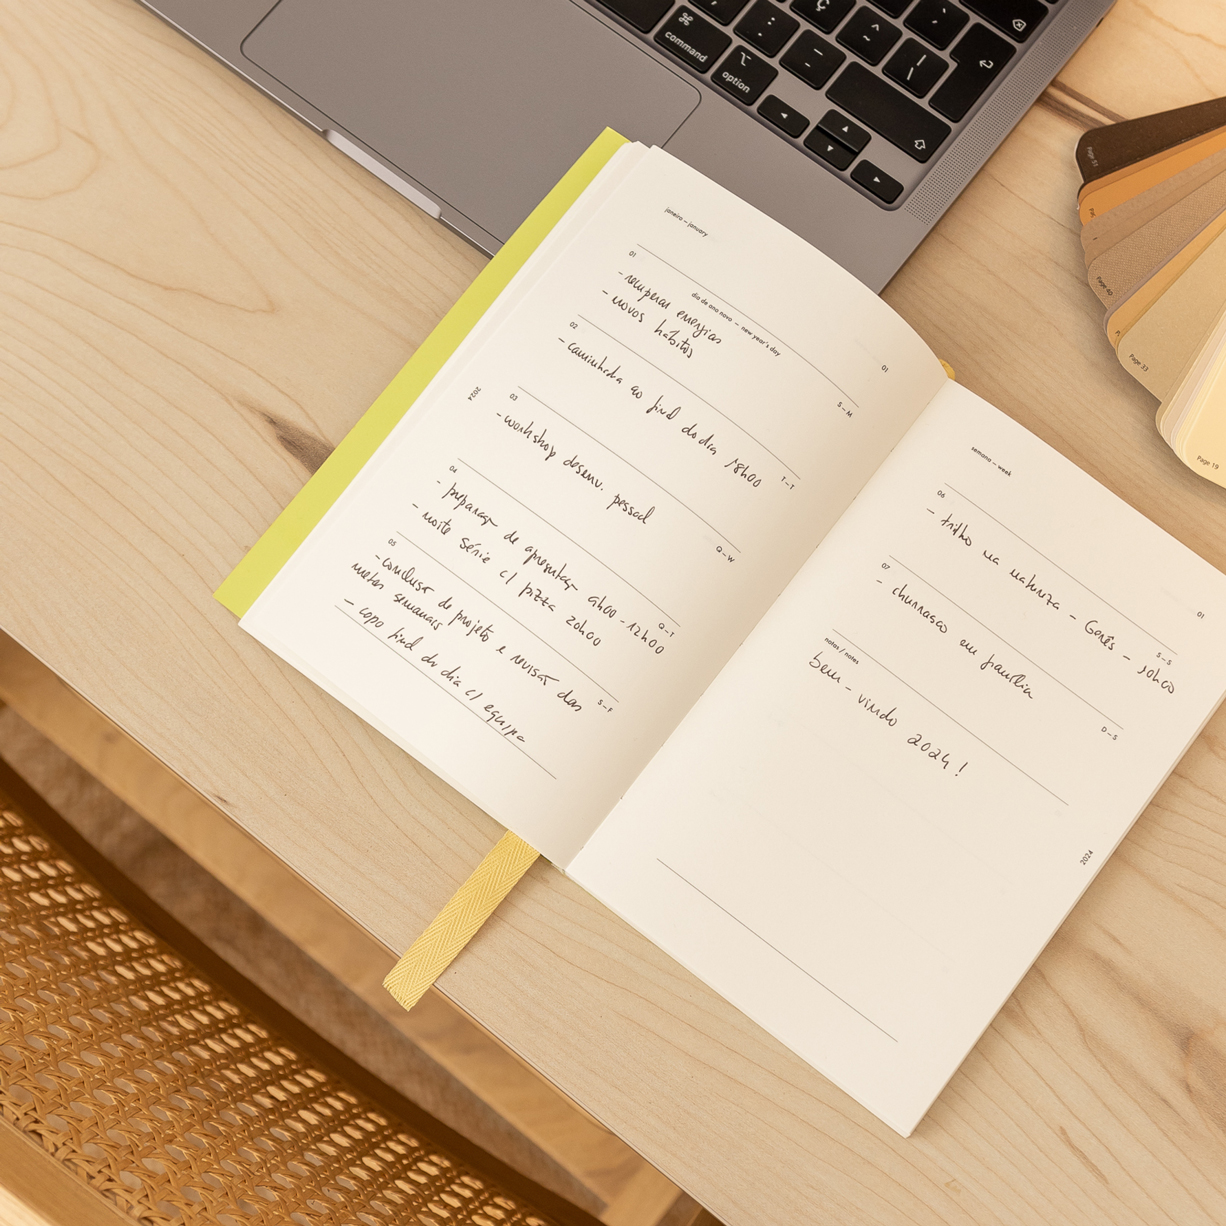 command
option
janeiro — january
01
dia de ano novo — new year's day
- recuperar energias
- novos hábitos
01
S — M
02
- caminhada ao final do dia 18h00
T — T
2024
03
- workshop desenv. pessoal
Q — W
04
- preparaç de apresentaç 9h00 - 12h00
- noite série c/ pizza 20h00
Q — T
05
- conclusão de projeto e revisão das
metas semanais
- copo final do dia c/ equipa
S — F
semana — week
06
- trilho na natureza - Gerês - 10h00
01
S — S
07
- churrasco em família
D — S
notas / notes
bem - vindo 2024 !
2024
Page 51
Page 40
Page 33
Page 19